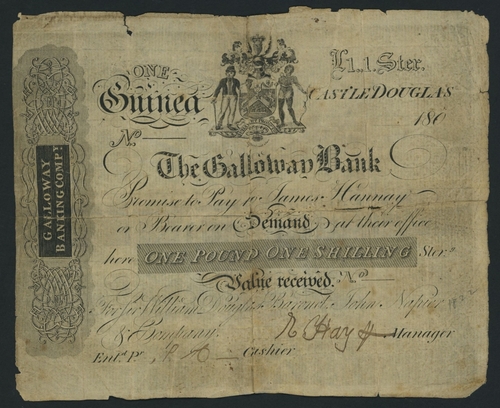 ONE
Guinea
£1.1. Ster.
CASTLE DOUGLAS
No.
180
The Galloway Bank
Promise to Pay to James Hannay
or Bearer on Demand at their office
here ONE POUND ONE SHILLING Ster.
Value received. No
For Sir William Douglas Baronet John Napier
& Company
Hay Manager
Entd. Pr. Cashier
GALLOWAY
BANKING COMPY.